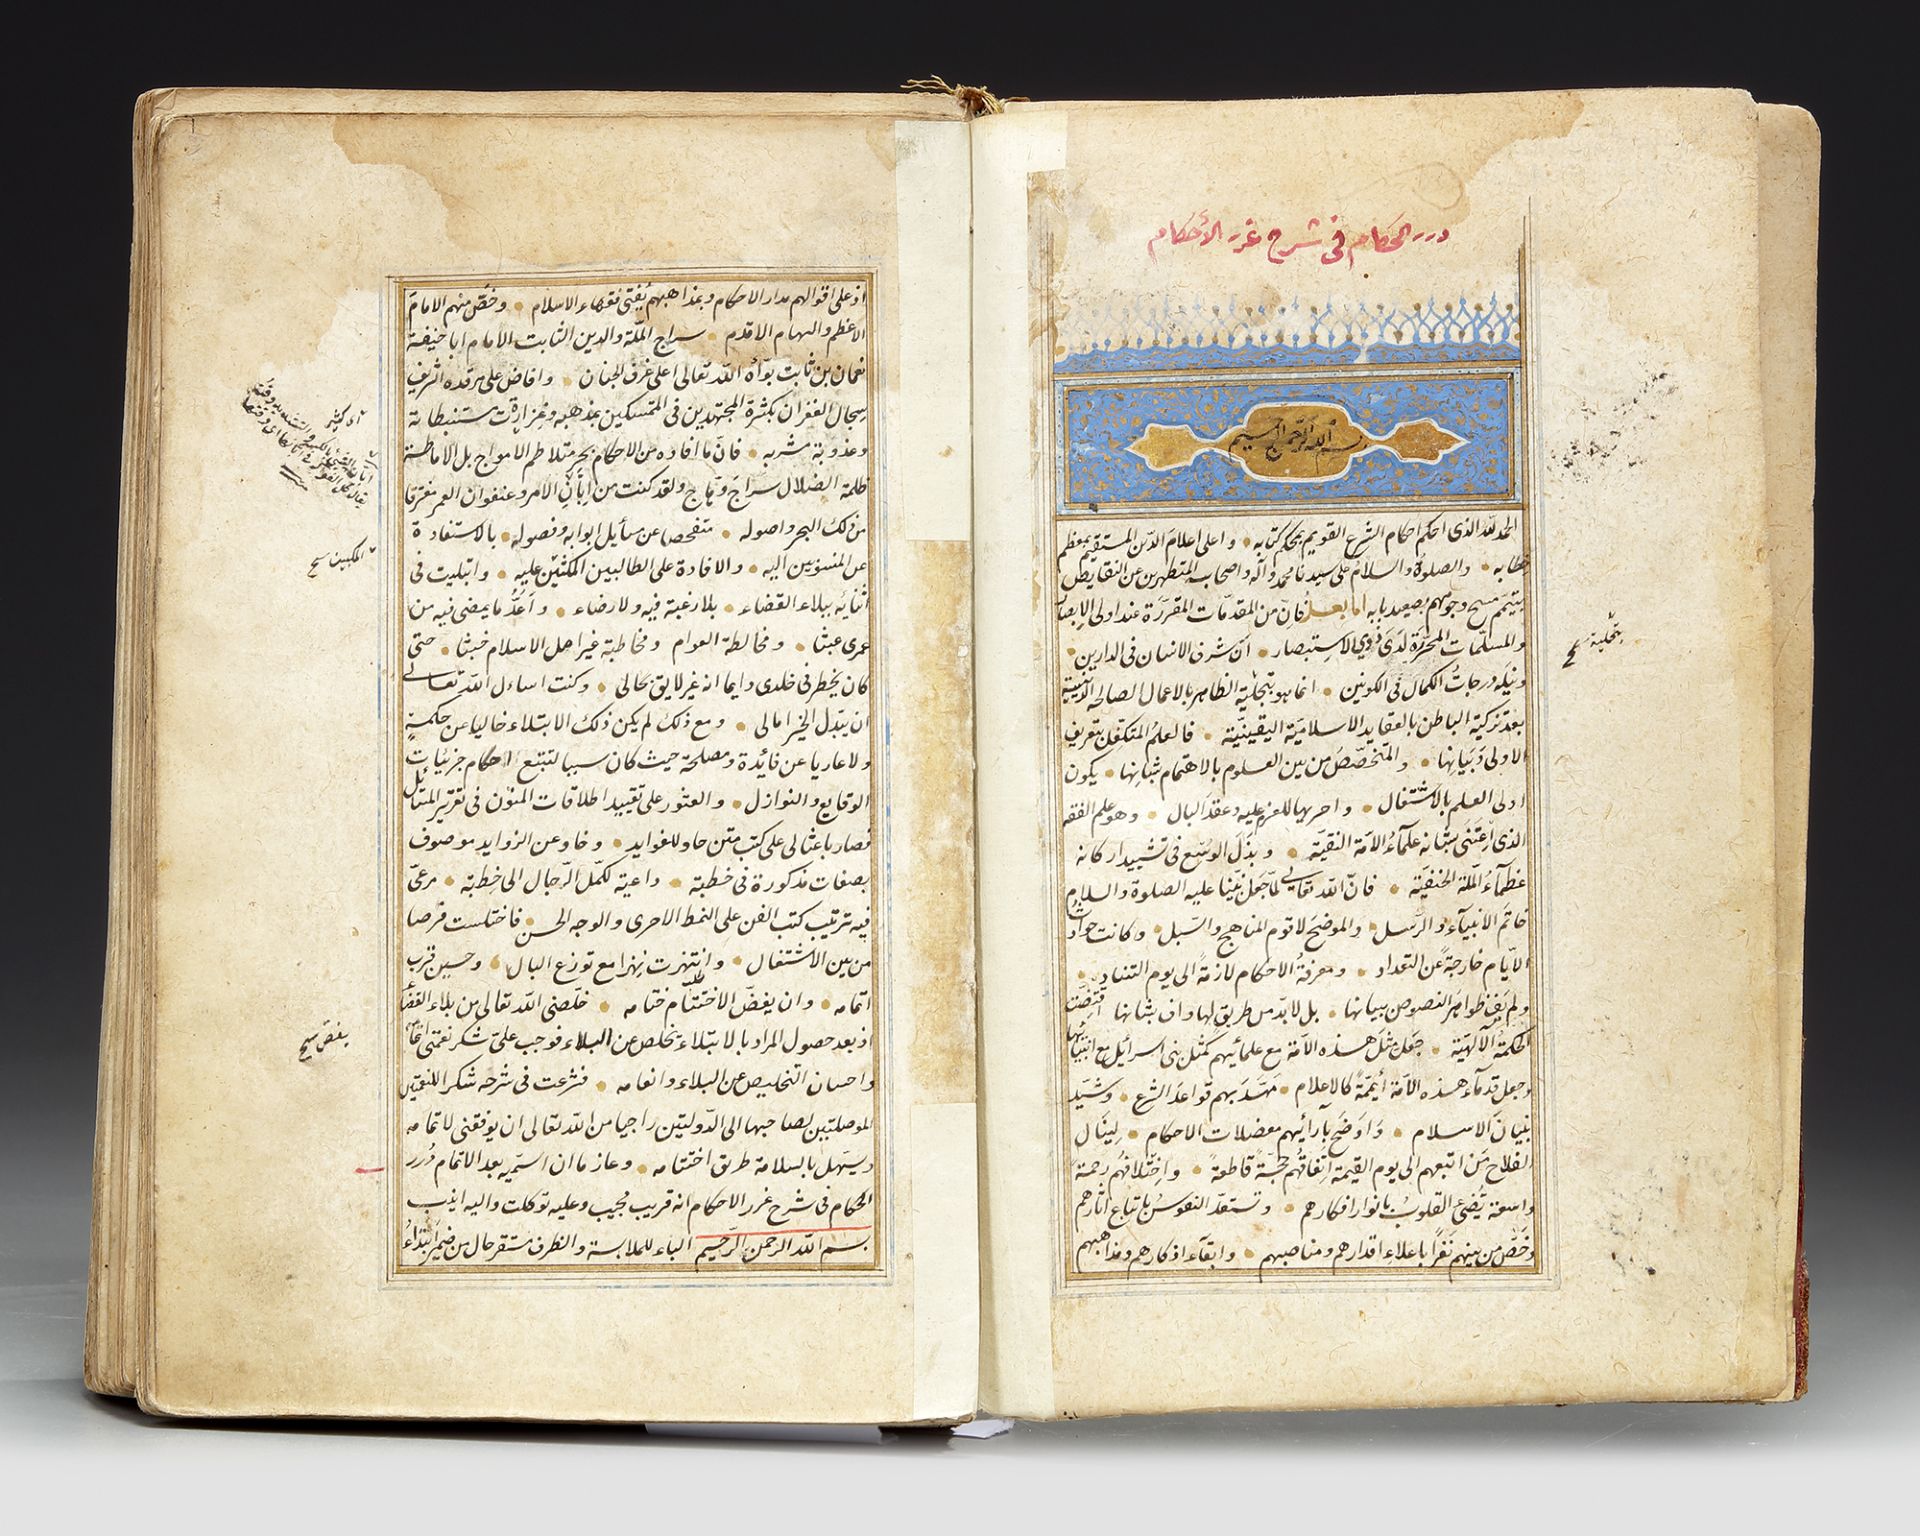 درر الحكام في شرح غرر الأحكام
بسم الله الرحمن الرحيم
الحمد لله الذى احكم احكام الشرع القويم بمحكم كتابه • واعلى اعلام الدّين المستقيم بمعظم
خطابه • والصلوة والسلام على سيدنا محمد وآله واصحابه المتطهرين عن النقايص
بتيمّم مسح وجوههم بصعيد بابه اما بعد فانّ من المقدمات المقررة عند اولى الابصار
والمسلّمات المحرّرة لدى ذوي الاستبصار • انّ شرف الانسان فى الدارين •
ونيله درجات الكمال فى الكونين • انما هو بتحلية الظاهر بالاعمال الصالحة الدينية
بعد تزكية الباطن بالعقايد الاسلاميّة اليقينيّة • فالعلم المتكفل بتعريف
الاولى وبيانها • والمتخصّص من بين العلوم بالاهتمام بشانها • يكون
اولى العلم بالاشتغال • واحريها للعزم عليه وعقد البال • وهو علم الفقه
الذى اعتنى بشانه علمآء الامّة النقيّة • وبذل الوسع فى تشييد اركانه
عظمآء الملّة الحنفيّة • فانّ الله تعالى لمّا جعل نبيّنا عليه الصلوة والسلام
خاتم الانبيآء والرّسل • والموضح لاقوم المناهج والسّبل • وكانت حوادث
الايّام خارجة عن التعداد • ومعرفة الاحكام لازمة الى يوم التناد •
ولم يف ظواهر النصوص ببيانها • بل لابدّ من طريق لها واف بشانها اقتضت
الحكمة الآلهيّة • جعل مثل هذه الامّة مع علمائهم كمثل بنى اسرائيل مع انبيائها
وجعل قدمآء هذه الامّة أئمّة كالاعلام • مهّد بهم قواعد الشرع • وشيّد
بنيان الاسلام • واوضح بآرائهم معضلات الاحكام • لينال
الفلاح من اتبعهم الى يوم القيمة اتّفاقهم حجّة قاطعة • واختلافهم رحمة
واسعة تضئ القلوب بانوار افكارهم • وتستعدّ النفوس باتباع آثارهم
وخصّ من بينهم نفرًا باعلاء اقدارهم ومناصبهم • وابقآء اذكارهم ومذاهبهم
بتحلية صح
اذ على اقوالهم مدار الاحكام وبمذاهبهم يفتى فقهاء الاسلام • وخصّ منهم الامام
الاعظم والهمام الاقدم • سراج الملّة والدين الثابت الامام ابا حنيفة
نعمان بن ثابت بوّأه الله تعالى اعلى غرف الجنان • وافاض على مرقده الشريف
سجال الغفران بكثرة المجتهدين فى المتمسكين بمذهبه وغزارة مستنبطاته
وعذوبة مشربه • فانّ ما افاده من الاحكام بحر متلاطم الامواج بل لاماطة
ظلمة الضلال سراج وهّاج ولقد كنت من ابّان الامر وعنفوان العمر مغترفا
من ذلك البحر واصوله • متفحصا عن مسائل ابوابه وفصوله • بالاستفادة
عن المنسوبين اليه • والافادة على الطالبين المكبّين عليه • وابتليت فى
اثنائه ببلاء القضاء • بلا رغبة فيه ولا رضاء • واعدّ ما يمضى فيه من
عمرى عبثا • ومخالطة العوام ومخاطبة غير اهل الاسلام خبثا • حتى
كان يخطر فى خلدى دايما انه غير لايق بحالى • وكنت اسأل الله تعالى
ان يبدل الخير امالى • ومع ذلك لم يكن ذلك الابتلاء خاليا عن حكمة
ولا عاريا عن فائدة ومصلحة حيث كان سببا لتتبع احكام جزئيات
الوقايع والنوازل • والعثور على تقييد اطلاقات المتون فى تقرير المسائل
فصار باعثا لى على كتب متن حاو للفوايد • وخاو عن الزوايد موصوف
بصفات مذكورة فى خطبة • داعية لكمّل الرّجال الى خطبة • مرعىّ
فيه ترتيب كتب الفن على النمط الاحرى والوجه الحسن • فاختلست فرصا
من بين الاشتغال • وانتهزت نهزا مع توزع البال • وحين قرب
اتمامه • وان يفضّ الاختتام ختامه • خلّصنى الله تعالى من بلاء القضاء
اذ بعد حصول المراد بالابتلاء يخلص عن البلاء فوجب علىّ شكر نعمتى اتمامه
واحسان التخليص عن البلاء وانعامه • فشرعت فى شرحه شكرا للنعمتين
الموصلتين لصاحبها الى الدّولتين راجيا من الله تعالى ان يوفقنى لاتمامه
ويسهل بالسلامة طريق اختتامه • وعازما ان اسمّيه بعد الاتمام درر
الحكام فى شرح غرر الاحكام انه قريب مجيب وعليه توكلت واليه انيب
بسم الله الرحمن الرحيم الباء للملابسة والظرف مستقر حال من ضمير ابتداء
اى كثير
المكبين صح
يفض صح